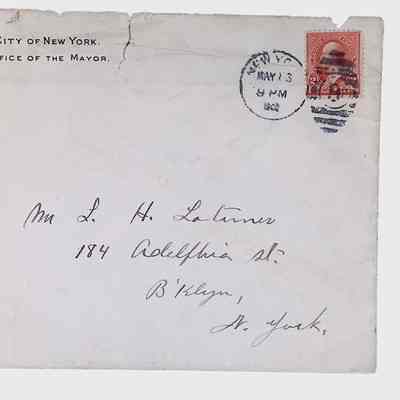 City of New York.
ffice of the Mayor.
NEW YO
MAY 13
9 PM
1902
Mr L. H. Latimer
184 Adelphia st.
B'klyn,
N. York.